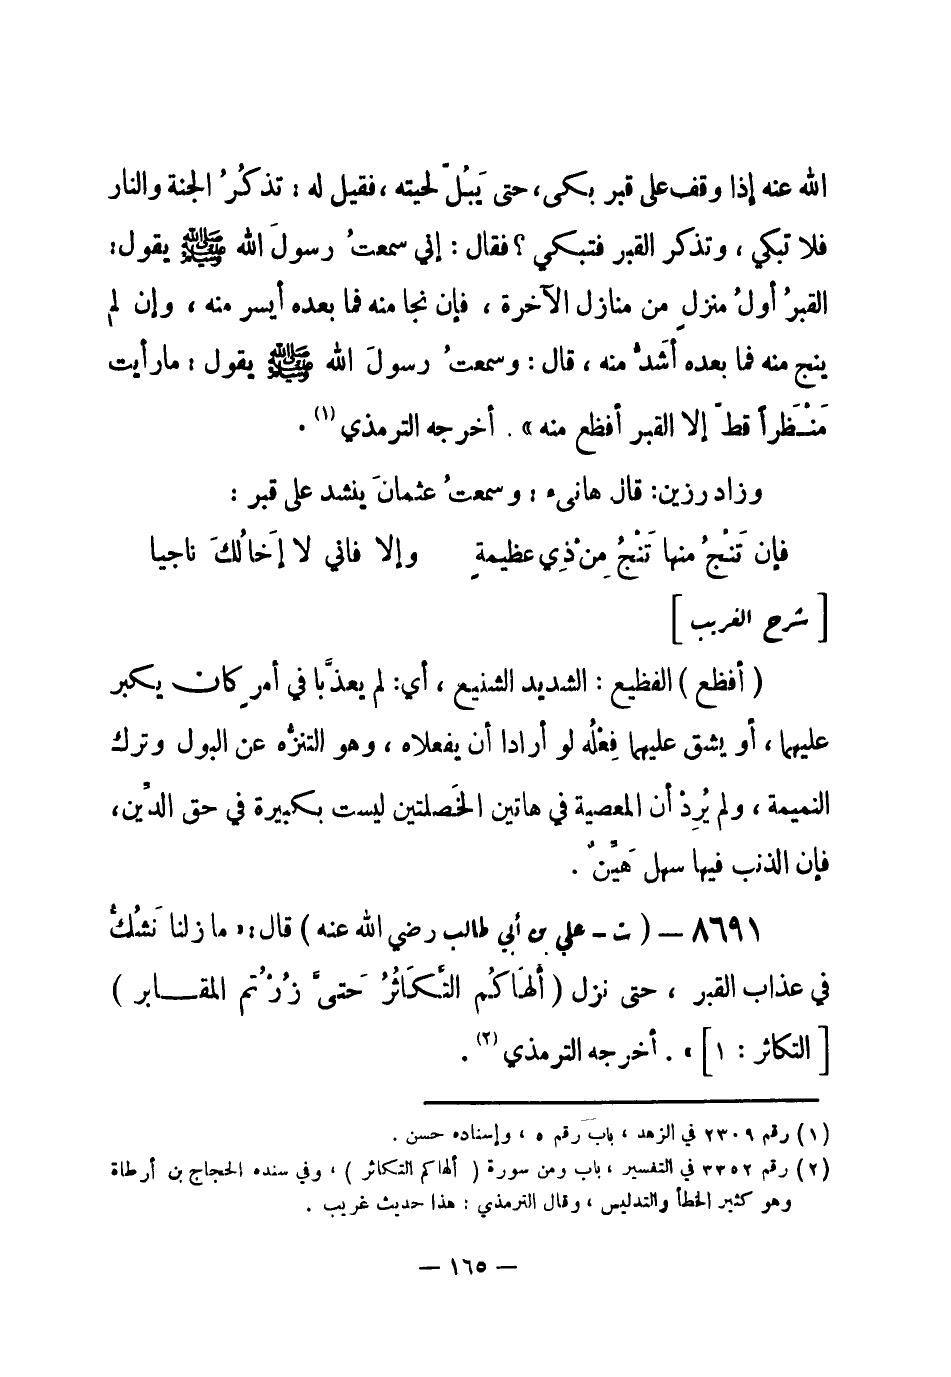 الله عنه إذا وقف على قبر بكى، حتى يَبُلّ لحيته ، فقيل له : تذكُرُ الجنة والنار
فلا تبكي ، وتذكر القبر فتبكي ؟ فقال : إني سمعتُ رسولَ الله ﷺ يقول:
القبرُ أولُ منزلٍ من منازل الآخرة ، فإن نجا منه فما بعده أيسر منه ، وإن لم
ينج منه فما بعده أشدُّ منه ، قال : وسمعتُ رسولَ الله ﷺ يقول : ما رأيت
مَنْظَراً قطّ إلا القبر أفظع منه » . أخرجه الترمذي (١) .
وزاد رزين: قال هانىء : وسمعتُ عثمانَ ينشد على قبر :
فإن تَنْجُ منها تَنْجُ مِنْ ذِي عظيمةٍ وإلا فاني لا إخَالُكَ ناجيا
[ شرح الغريب ]
( أفظع ) الفظيع : الشديد الشنيع ، أي: لم يعذَّبا في أمرٍ كان يكبر
عليهما ، أو يشق عليهما فِعْلُه لو أرادا أن يفعلاه ، وهو التنزُّه عن البول وترك
النميمة ، ولم يُرِدْ أن المعصية في هاتين الخَصلتين ليست بكبيرة في حق الدِّين،
فإن الذنب فيها سهل هَيِّنٌ .
٨٦٩١ – ( ت – علي بن أبي طالب رضي الله عنه ) قال : « ما زلنا نَشُكُّ
في عذاب القبر ، حتى نزل ( ألهَاكُم التَّكَاثُرُ حَتىَّ زُرْتُم المقابر )
[ التكاثر : ١ ] » . أخرجه الترمذي (٢) .
(١) رقم ٢٣٠٩ في الزهد ، باب رقم ٥ ، وإسناده حسن .
(٢) رقم ٣٣٥٢ في التفسير ، باب ومن سورة ( ألهاكم التكاثر ) ، وفي سنده الحجاج بن أرطاة
وهو كثير الخطأ والتدليس ، وقال الترمذي : هذا حديث غريب .
– ١٦٥ –